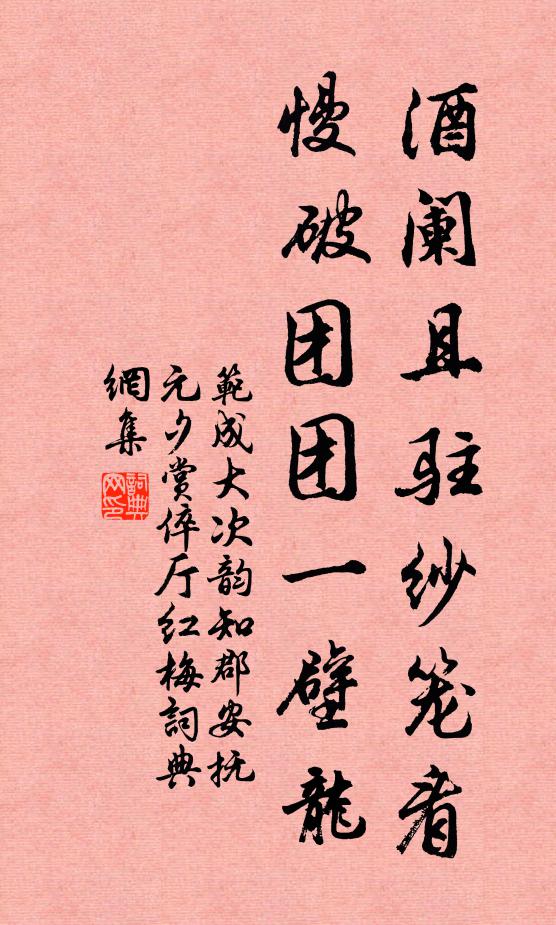 酒阑且驻纱笼看
慢破团团一璧龍
範成大次韵知郡安抚
元夕赏倅厅红梅詞典
網集
詞典
网印